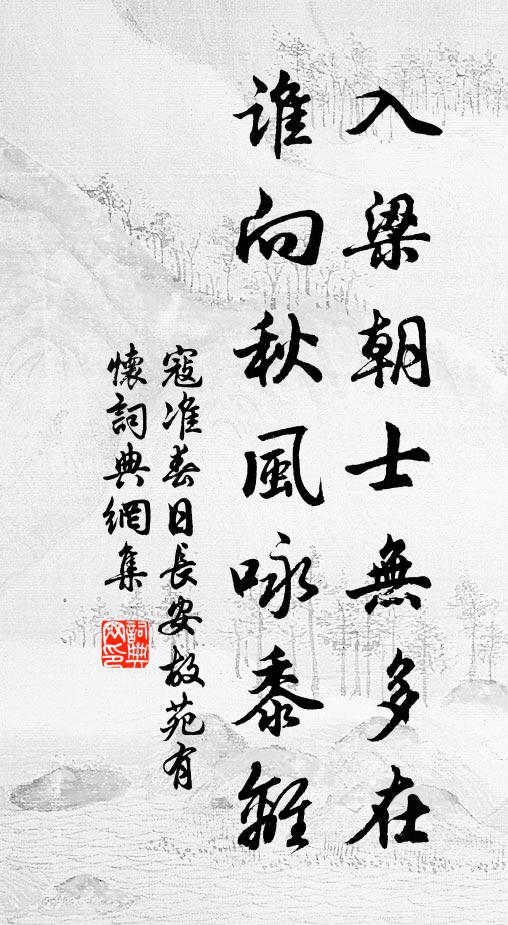 入梁朝士無多在
誰向秋風咏黍離
寇准春日長安故苑有
懷詞典網集
詞典
网印